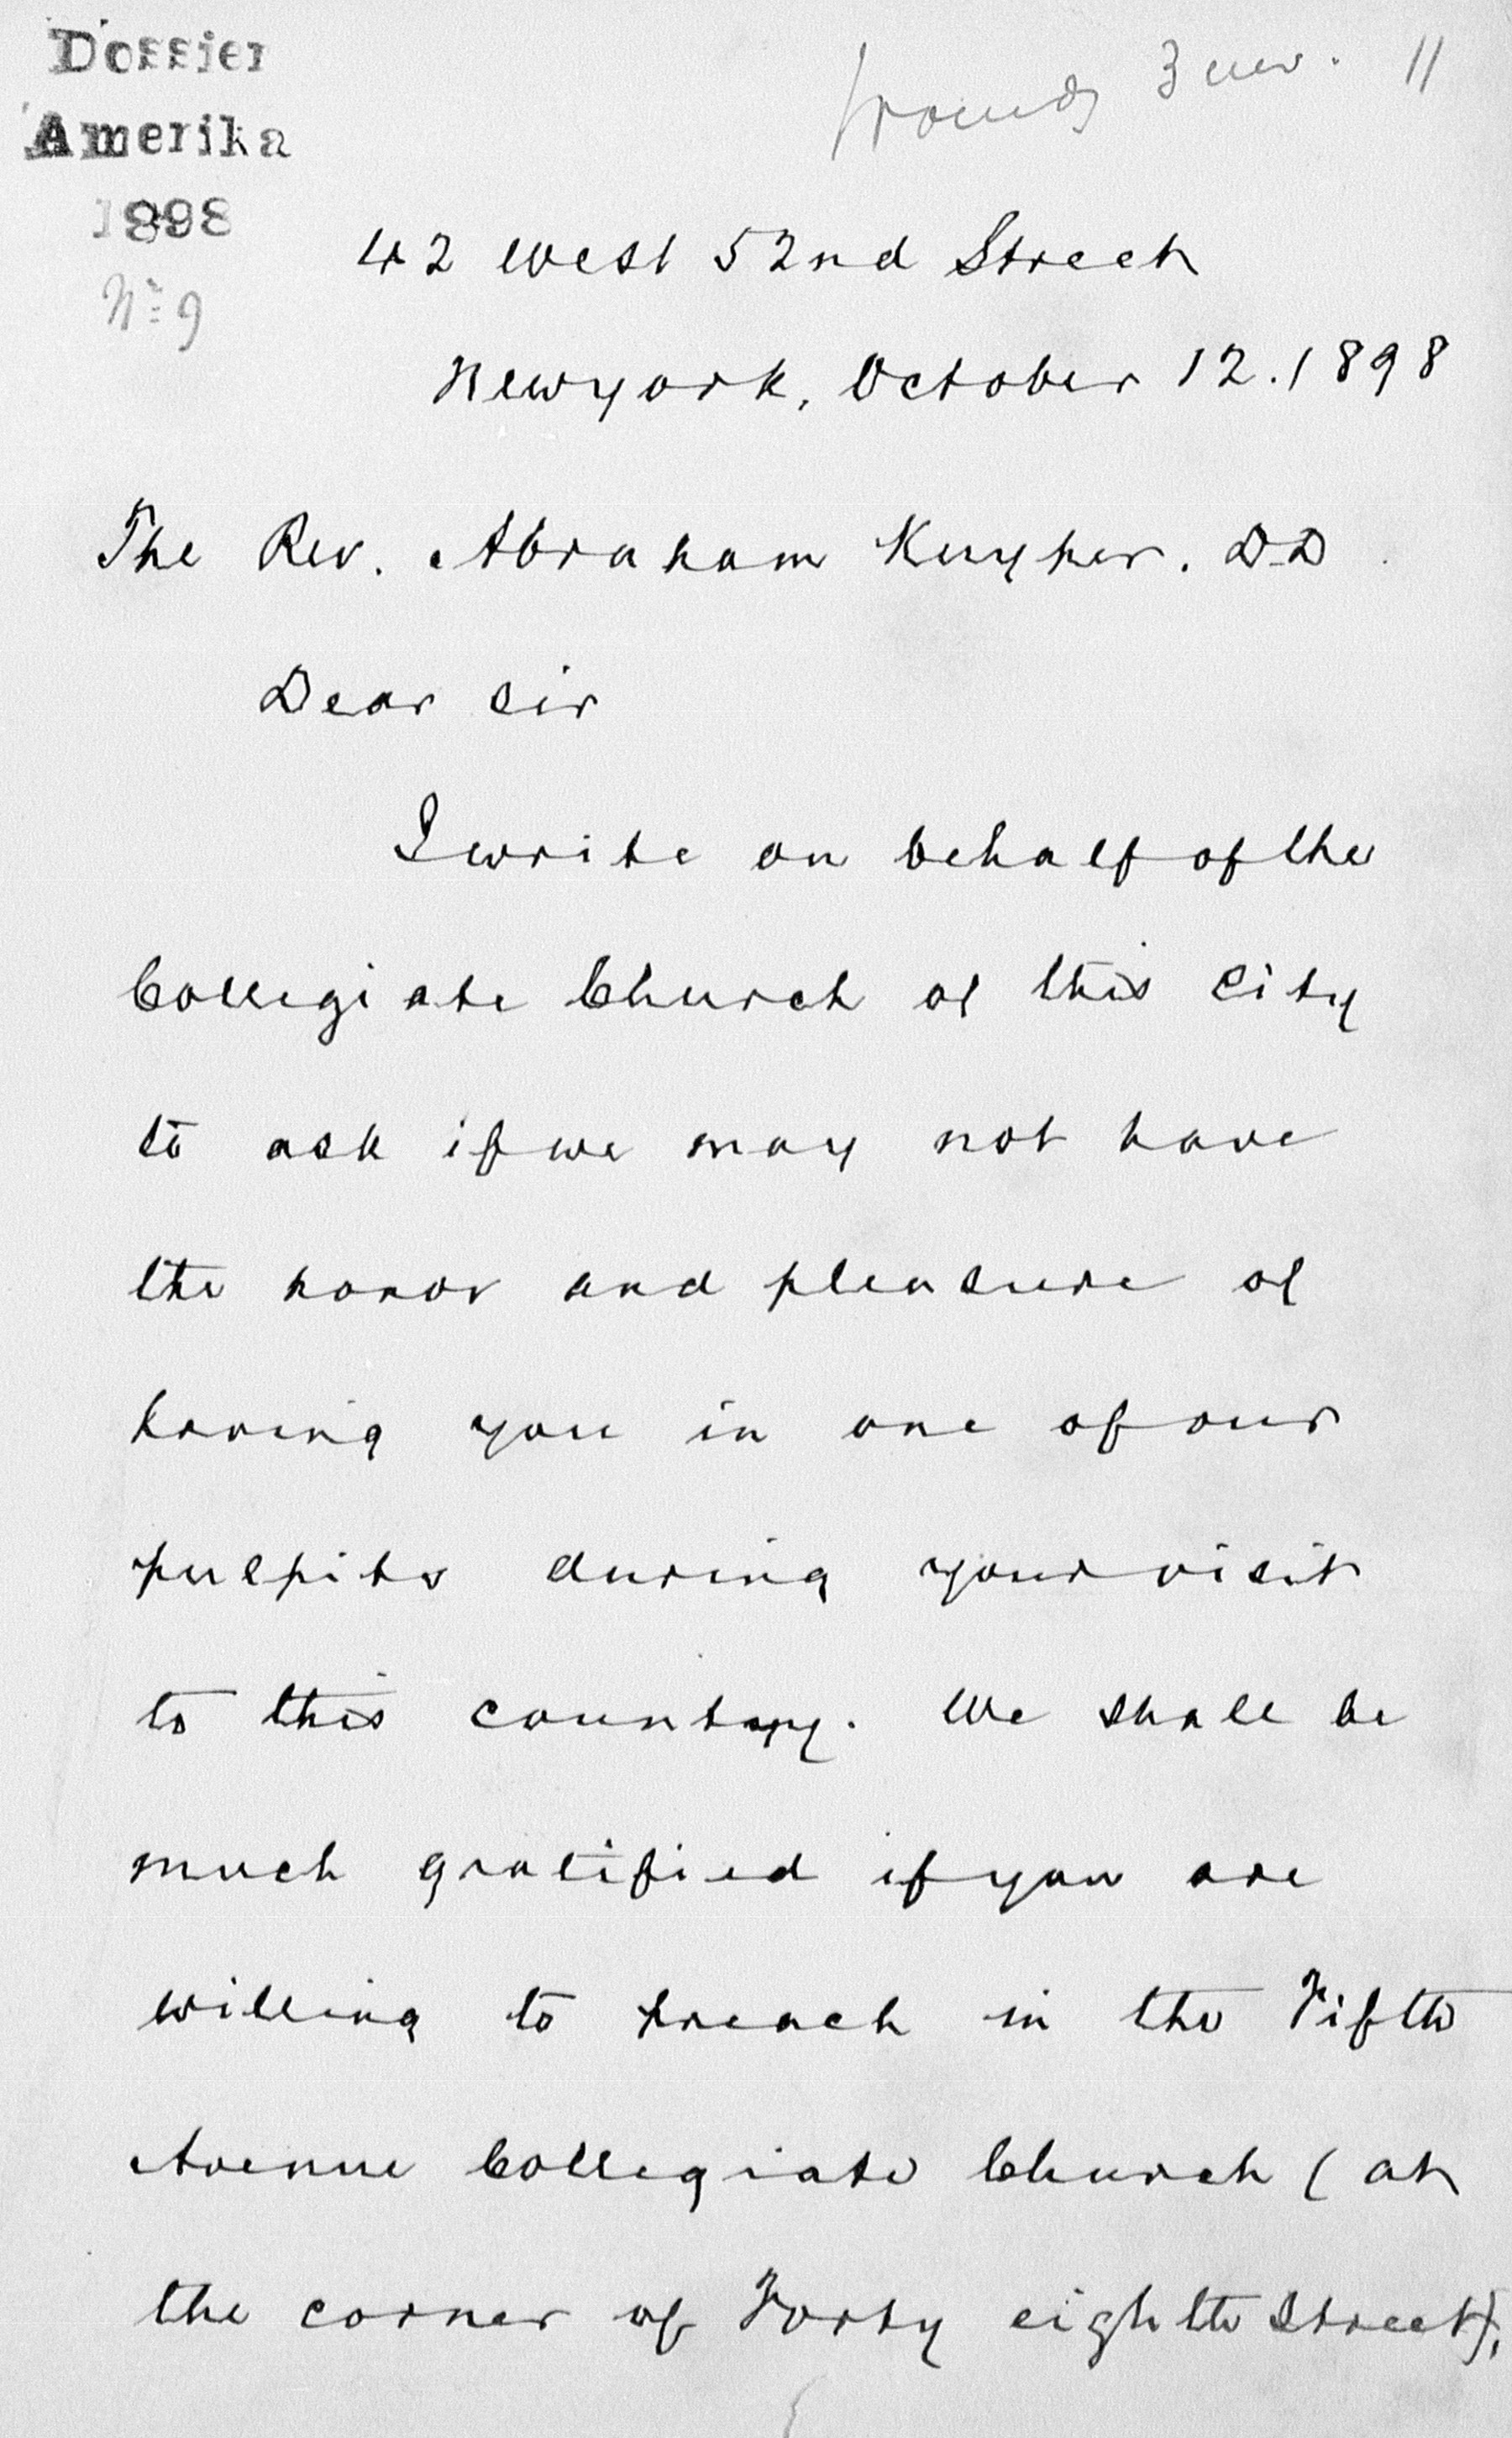 Dossier
Amerika
1898
No 9
11
42 West 52nd Street
Newyork, October 12. 1898
The Rev. Abraham Kuyper. D.D
Dear Sir
I write on behalf of the
Collegiate Church of this City
to ask if we may not have
the honor and pleasure of
having you in one of our
pulpits during your visit
to this country. We shall be
much gratified if you are
willing to preach in the Fifth
Avenue Collegiate Church (at
the corner of Forty eighth Street),